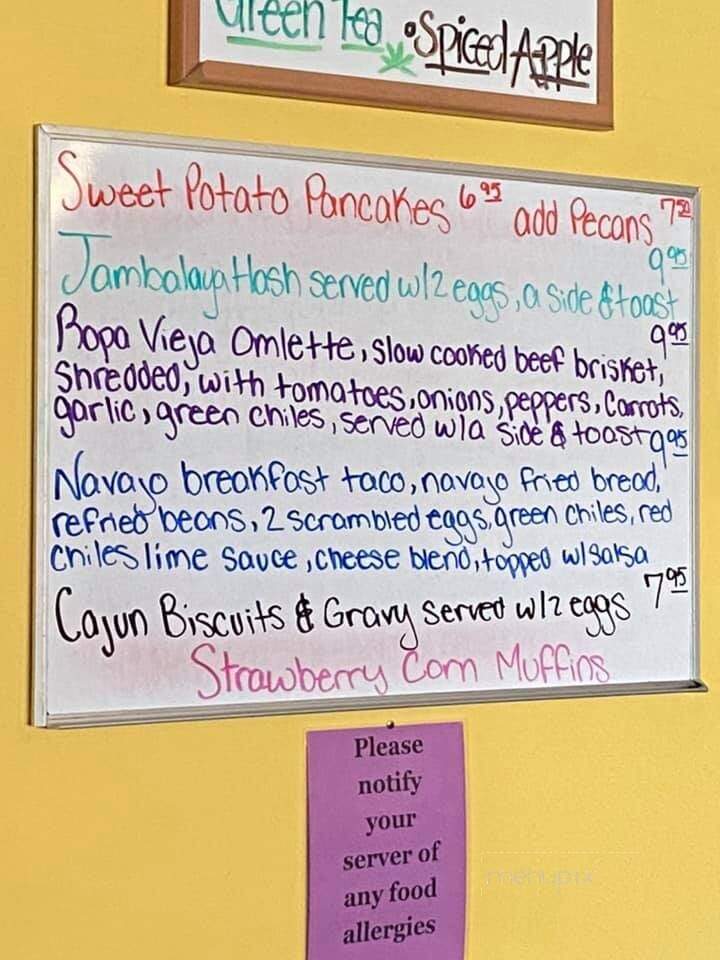 Green Tea • Spiced Apple
Sweet Potato Pancakes 6 95 add Pecans 7 50
9 95
Jambalaya Hash served w/2 eggs, a side & toast
9 95
Ropa Vieja Omlette, slow cooked beef brisket,
Shredded, with tomatoes, onions, peppers, Carrots,
garlic, green chiles, served w/a side & toast 9 95
Navajo breakfast taco, navajo fried bread,
refried beans, 2 scrambled eggs, green chiles, red
chiles lime sauce, cheese blend, topped w/salsa
Cajun Biscuits & Gravy served w/2 eggs 7 95
Strawberry Corn Muffins
Please
notify
your
server of
any food
allergies
menupix